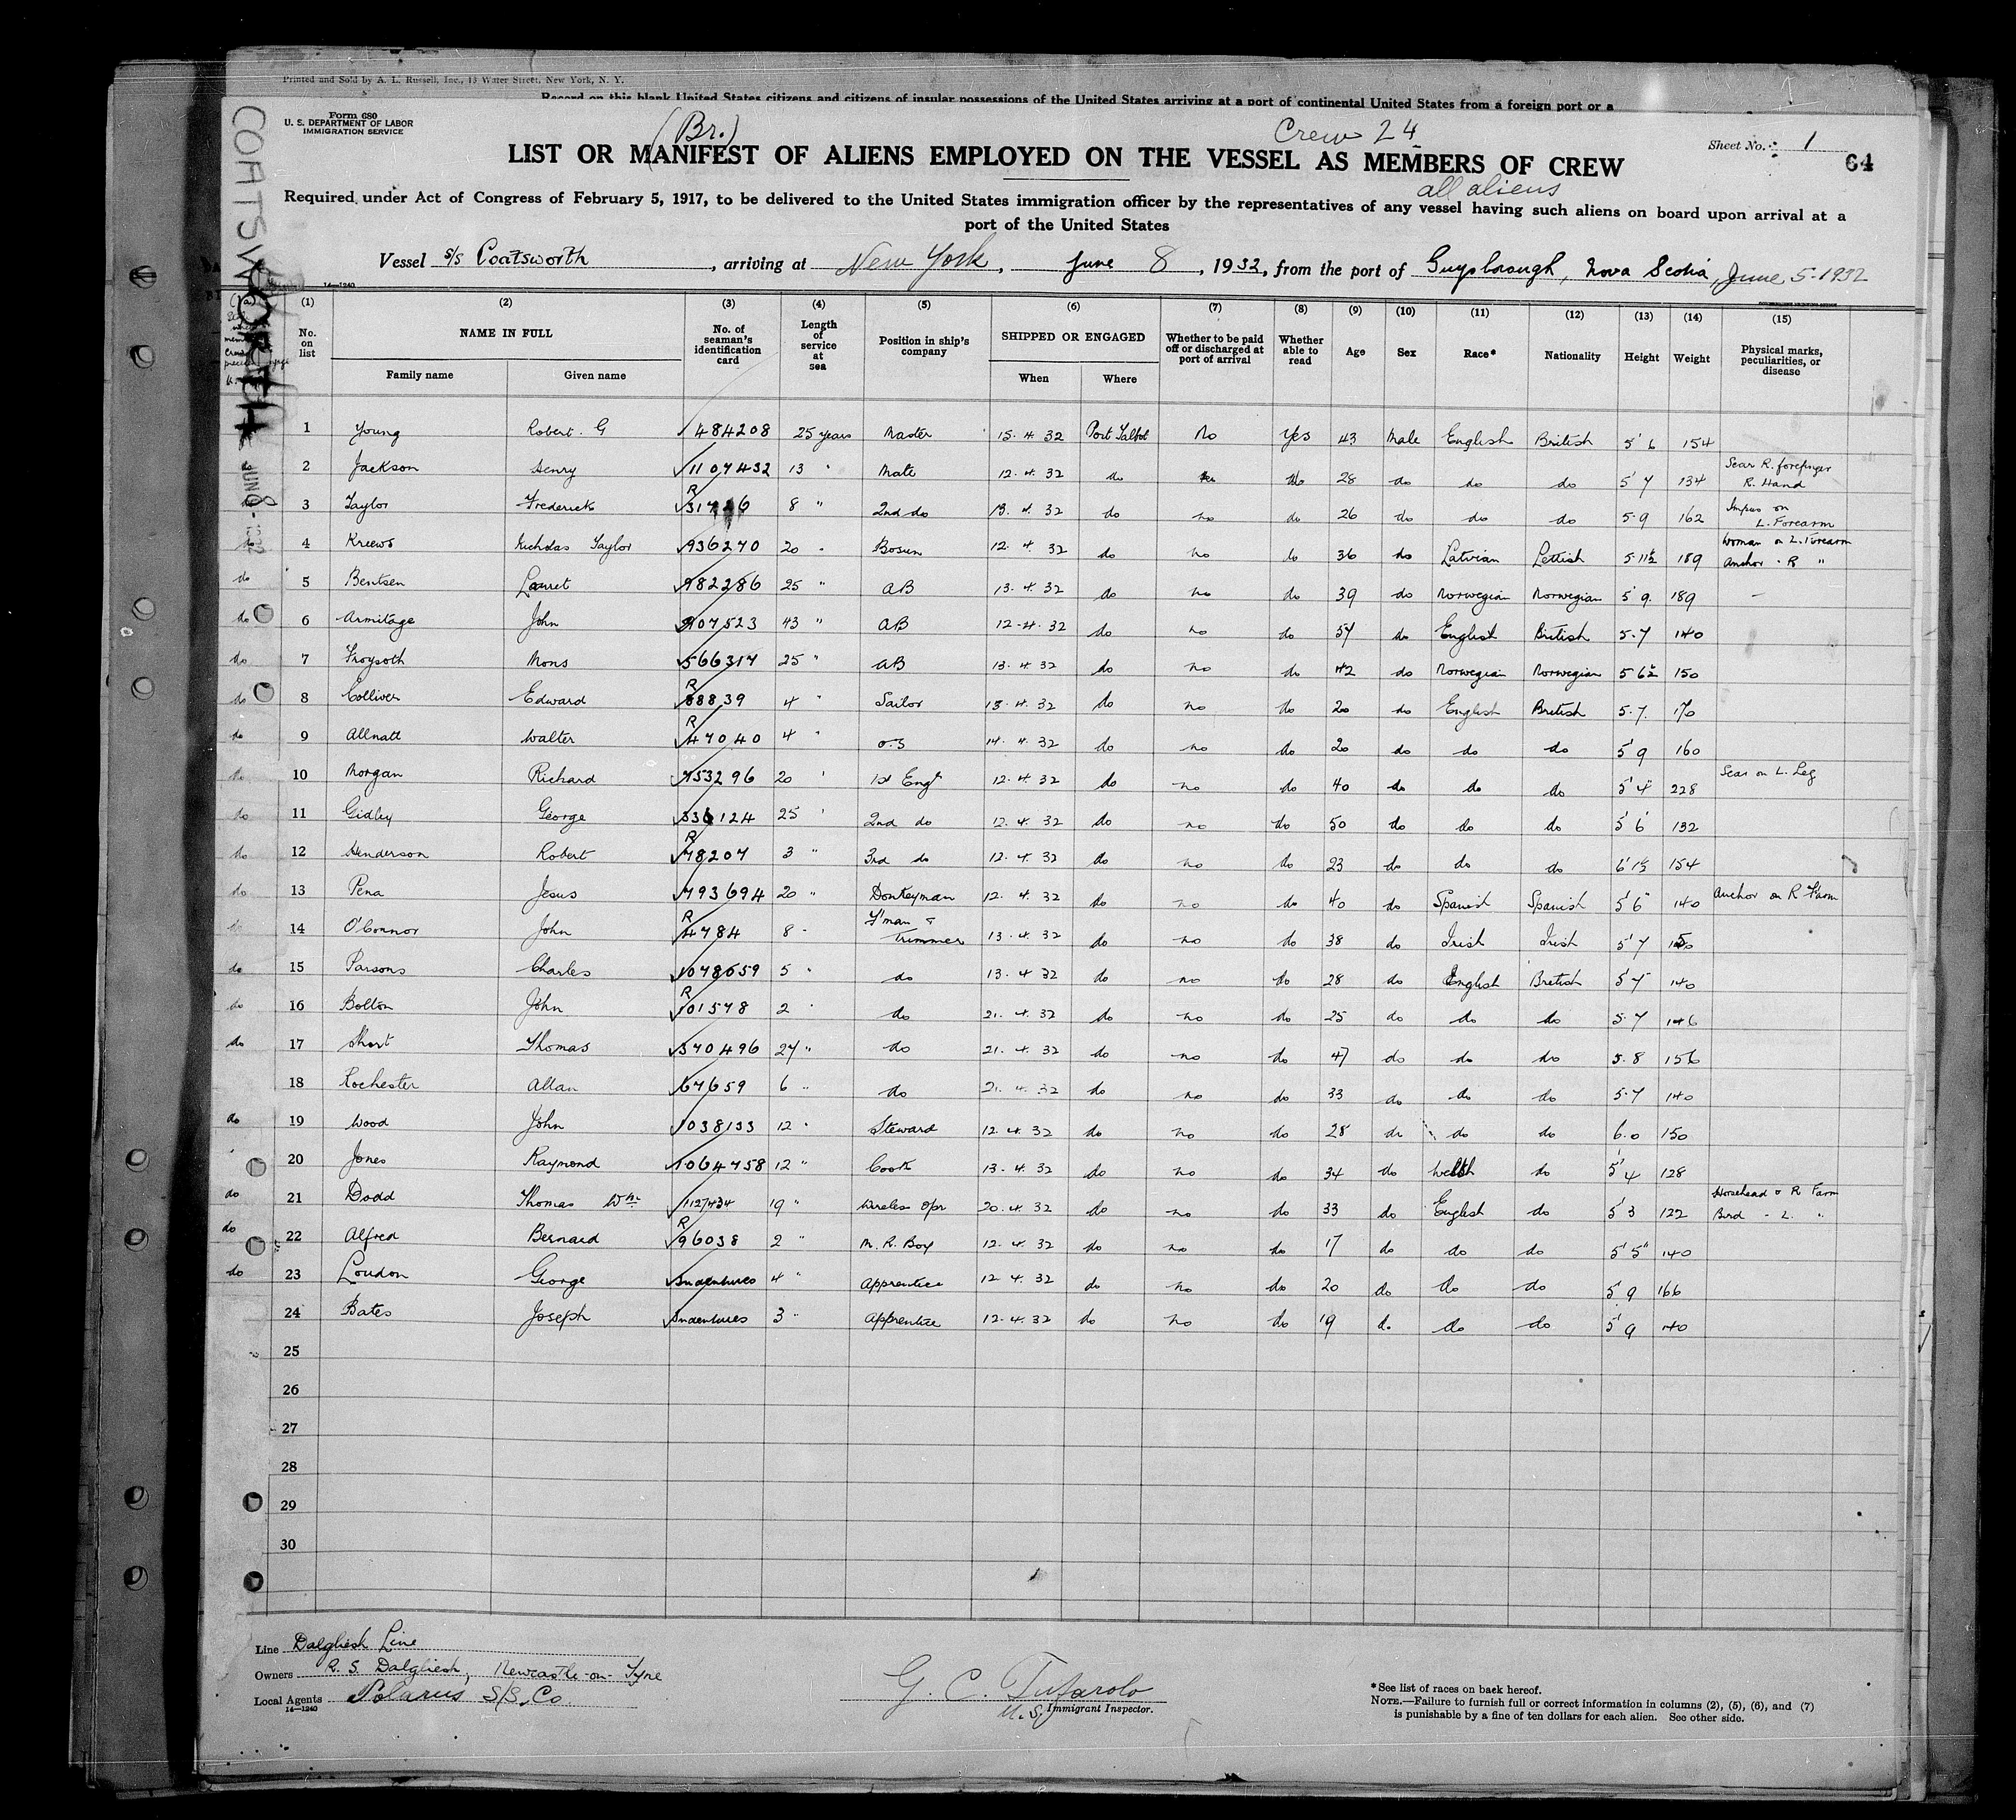 Printed and Sold by A. L. Russell, Inc., 15 Water Street, New York, N. Y.
Record on this blank United States citizens and citizens of insular possessions of the United States arriving at a port of continental United States from a foreign port or a
Form 680
U. S. DEPARTMENT OF LABOR
IMMIGRATION SERVICE
(Br.)
Crew 24
Sheet No. 1
64
LIST OR MANIFEST OF ALIENS EMPLOYED ON THE VESSEL AS MEMBERS OF CREW
all aliens
Required under Act of Congress of February 5, 1917, to be delivered to the United States immigration officer by the representatives of any vessel having such aliens on board upon arrival at a
port of the United States
COATSWORTH
JUN 8 - 1932
Vessel S/S Coatsworth, arriving at New York, June 8, 1932, from the port of Guysborough, Nova Scotia, June 5-1932
14—1240
(1) (2) (3) (4) (5) (6) (7) (8) (9) (10) (11) (12) (13) (14) (15)
No. on list NAME IN FULL Family name Given name No. of seaman's identification card Length of service at sea Position in ship's company SHIPPED OR ENGAGED When Where Whether to be paid off or discharged at port of arrival Whether able to read Age Sex Race* Nationality Height Weight Physical marks, peculiarities, or disease
1 Young Robert. G 484208 25 years Master 15.4.32 Port Talbot No Yes 43 Male English British 5'6 154
do 2 Jackson Henry 1107432 13 " Mate 12.4.32 do do 28 do do do 5'7 134 Scar R. forefinger R. Hand
3 Taylor Frederick R 8 " 2nd do 13.4.32 do no do 26 do do do 5.9 162 L. Forearm
do 4 Kreews Nicholas Taylor 936270 20 " Bosun 12.4.32 do no do 36 do Latvian Lettish 5.11½ 189 Woman on L. Forearm Anchor - R "
do 5 Bentsen Lauret 982286 25 " AB 13.4.32 do no do 39 do Norwegian Norwegian 5'9. 189 -
do 6 Armitage John 907523 43 " AB 12-4.32 do no do 57 do English British 5.7 140
do 7 Froysoth Mons 566317 25 " AB 13.4.32 do no do 42 do Norwegian Norwegian 5 6½ 150
do 8 Colliver Edward R 88839 4 " Sailor 13.4.32 do no do 20 do English British 5.7. 170
do 9 Allnatt Walter R 47040 4 " O.S 14.4.32 do no do 20 do do do 5'9 160
do 10 Morgan Richard 753296 20 " 1st Engr 12.4.32 do no do 40 do do do 5'4" 228 Scar on L. Leg
do 11 Gidley George 336124 25 " 2nd do 12.4.32 do no do 50 do do do 5'6 132
do 12 Henderson Robert R 78207 3 " 3rd do 12.4.32 do no do 23 do do do 6'1½ 154
do 13 Pena Jesus 793694 20 " Donkeyman 12.4.32 do no do 40 do Spanish Spanish 5'6" 140 Anchor on R F'arm
do 14 O'Connor John R 4784 8 " F'man & Trimmer 13.4.32 do no do 38 do Irish Irish 5'7
do 15 Parsons Charles 1078659 5 " do 13.4.32 do no do 28 do English British 5'7" 140
do 16 Bolton John R 101578 2 " do 21.4.32 do no do 25 do do do 5.7 146
do 17 Short Thomas 570496 27 " do 21.4.32 do no do 47 do do do 5.8 156
18 Rochester Allan 67659 6 " do 21.4.32 do no do 33 do do do 5.7 140
do 19 Wood John 1038133 12 " Steward 12.4.32 do no do 28 do do do 6.0 150
20 Jones Raymond 1064758 12 " Cook 13.4.32 do no do 34 do Welsh do 5'4 128
do 21 Dodd Thomas Wm 1127434 19 " Wireless Opr 20.4.32 do no do 33 do English do 5'3 122 Horsehead o R Farm Bird - L. "
do 22 Alfred Bernard R 96038 2 " M. R. Boy 12.4.32 do no do 17 do do do 5'5" 140
do 23 Loudon George Indentures 4 " Apprentice 12.4.32 do no do 20 do do do 5'9 166
24 Bates Joseph Indentures 3 " Apprentice 12.4.32 do no do 19 do do do 5'9 140
25
26
27
28
29
30
Line Dalgliesh Line
Owners R. S. Dalgliesh, Newcastle-on-Tyne
Local Agents Polarus S/S. Co
14—1240
G. C. Tufarolo
U. S. Immigrant Inspector.
*See list of races on back hereof.
NOTE.—Failure to furnish full or correct information in columns (2), (5), (6), and (7)
is punishable by a fine of ten dollars for each alien. See other side.